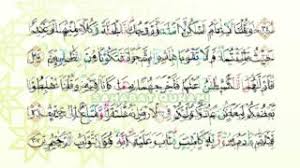 وَقُلْنَا يَٰٓـَٔادَمُ ٱسْكُنْ أَنتَ وَزَوْجُكَ ٱلْجَنَّةَ وَكُلَا مِنْهَا رَغَدًا
حَيْثُ شِئْتُمَا وَلَا تَقْرَبَا هَٰذِهِ ٱلشَّجَرَةَ فَتَكُونَا مِنَ ٱلظَّٰلِمِينَ ٣٥
فَأَزَلَّهُمَا ٱلشَّيْطَٰنُ عَنْهَا فَأَخْرَجَهُمَا مِمَّا كَانَا فِيهِ وَقُلْنَا ٱهْبِطُوا۟
بَعْضُكُمْ لِبَعْضٍ عَدُوٌّ وَلَكُمْ فِى ٱلْأَرْضِ مُسْتَقَرٌّ وَمَتَٰعٌ إِلَىٰ حِينٍ ٣٦
فَتَلَقَّىٰٓ ءَادَمُ مِن رَّبِّهِۦ كَلِمَٰتٍ فَتَابَ عَلَيْهِ إِنَّهُۥ هُوَ ٱلتَّوَّابُ ٱلرَّحِيمُ ٣٧